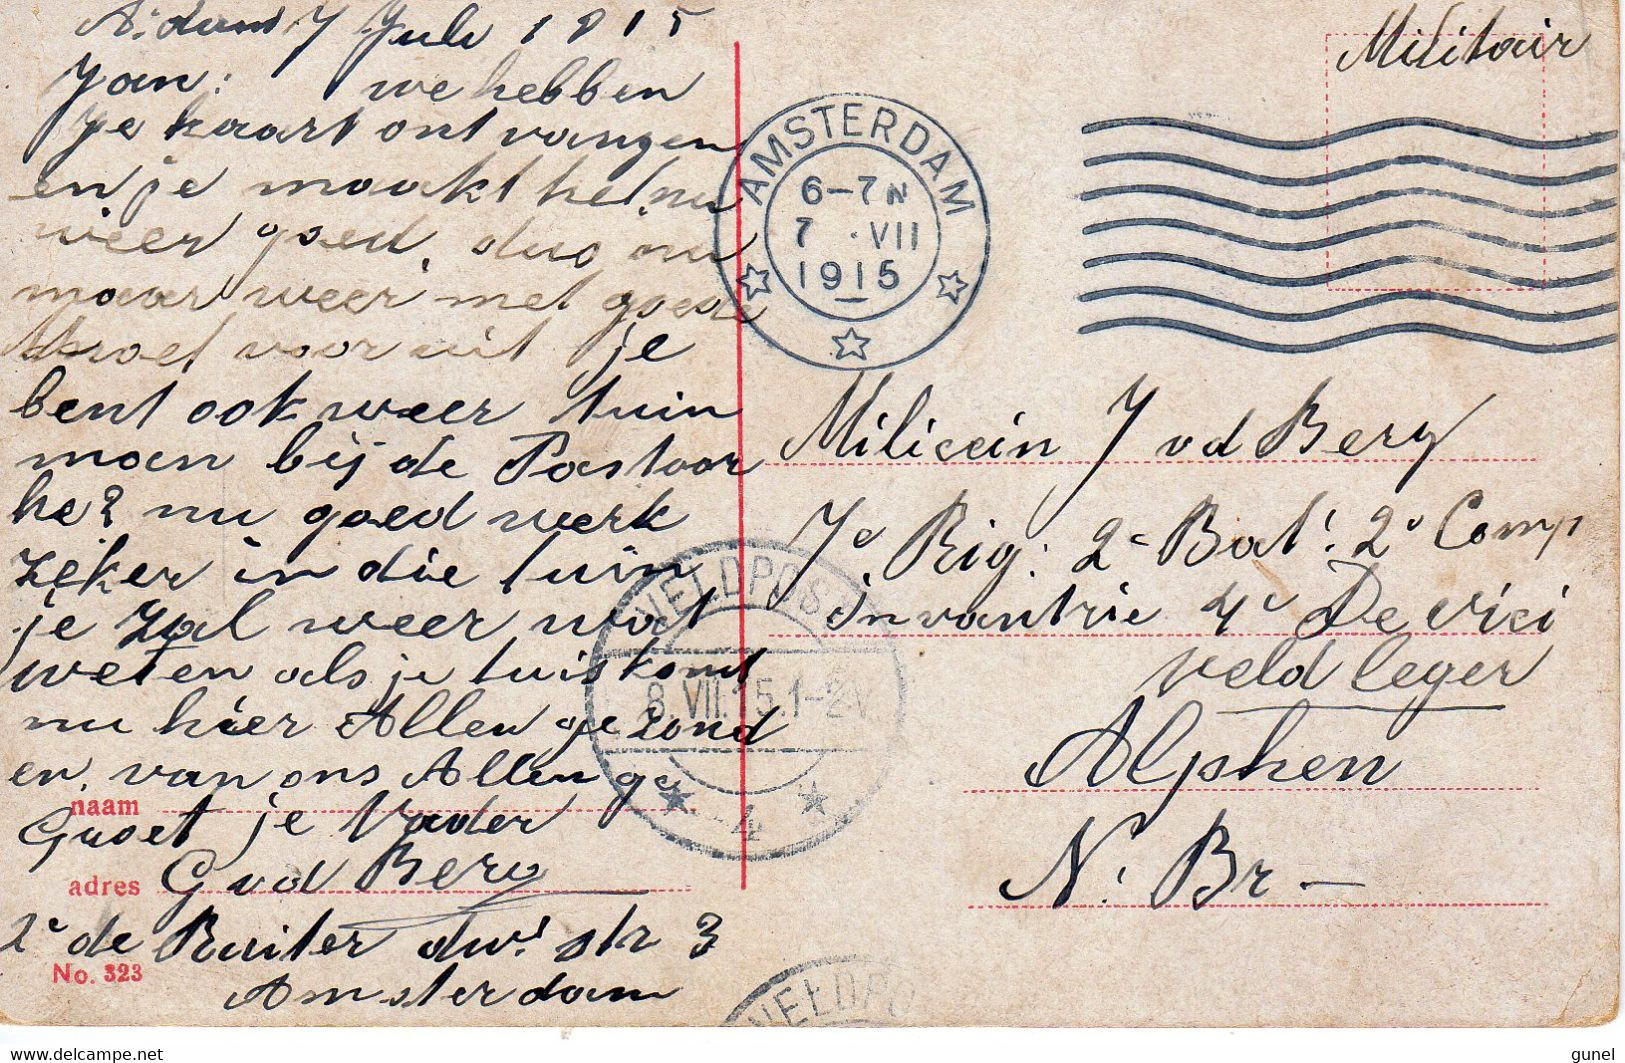 A:dam 7 Juli 1915
Jan: we hebben
je kaart ontvangen
en je maakt het nu
weer goed, dus nu
maar weer met goede
moet vooruit je
bent ook weer tuin
man bij de Pastoor
he? nu goed werk
zeker in die tuin
je zal weer wat
weten als je tuis komt
nu hier Allen gezond
en van ons Allen ge
naam
Groet je Vader
adres G vd Berg
1e de Ruiter dw! str 3
No. 323
Amsterdam
Militair
AMSTERDAM
6–7N
7 .VII
1915
Milicein J vd Berg
7e Rig: 2e Bat! 2e Comp
invantrie 4e De vici
veld leger
Alphen
N. Br –
VELDPOST
8.VII.15.1–2V
4
VELDPO
www.delcampe.net
gunel